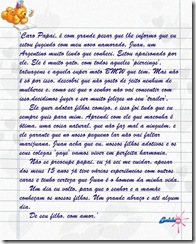 Caro Papai, é com grande pesar que lhe informo que eu
estou fugindo com meu novo namorado, Juan, um
Argentino muito lindo que conheci. Estou apaixonado por
ele. Ele é muito gato, com todos aqueles 'piercings',
tatuagens e aquela super moto BMW que tem. Mas não
é só por isso, descobri que não gosto de jeito nenhum de
mulheres e, como sei que o senhor não vai consentir com
isso, decidimos fugir e ser muito felizes no seu 'trailer'.
Ele quer adotar filhos comigo, e isso foi tudo que eu
sempre quis para mim. Aprendi com ele que maconha é
ótima, uma coisa natural, que não faz mal a ninguém, e
ele garante que no nosso pequeno lar não vai faltar
marijuana. Juan acha que eu, nossos filhos adotivos e os
seus colegas 'gays' vamos viver em perfeita harmonia.
Não se preocupe papai, eu já sei me cuidar, apesar
dos meus 15 anos já tive várias experiências com outros
caras e tenho certeza que Juan é o homem da minha vida.
Um dia eu volto, para que o senhor e a mamãe
conheçam os nossos filhos. Um grande abraço e até algum
dia.
De seu filho, com amor.